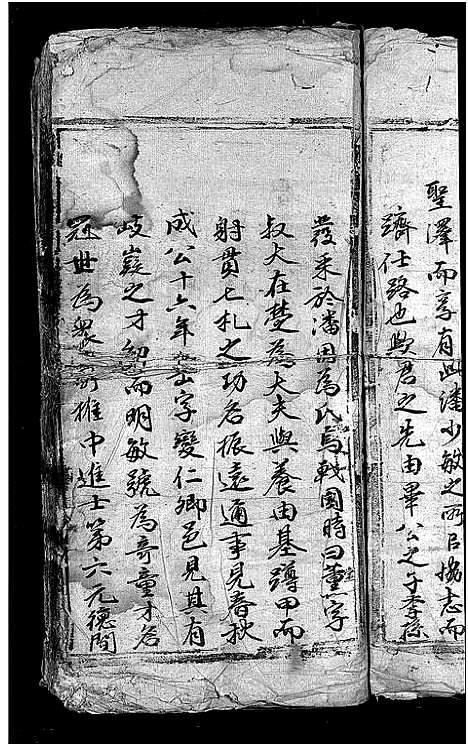 聖澤而享有此潘少敏之所以揚志而
躋仕路也歟君之先由畢公之子季孫
發采於潘因為氏焉戰國時曰董字
叔大在楚為大夫與養由基蹲甲而
射貫七札之功名振遠通事見春秋
成公十六年岳字變仁卿邑見其有
岐嶷之才幼而明敏號為奇童才名
冠世為眾 推中進士第六元德間